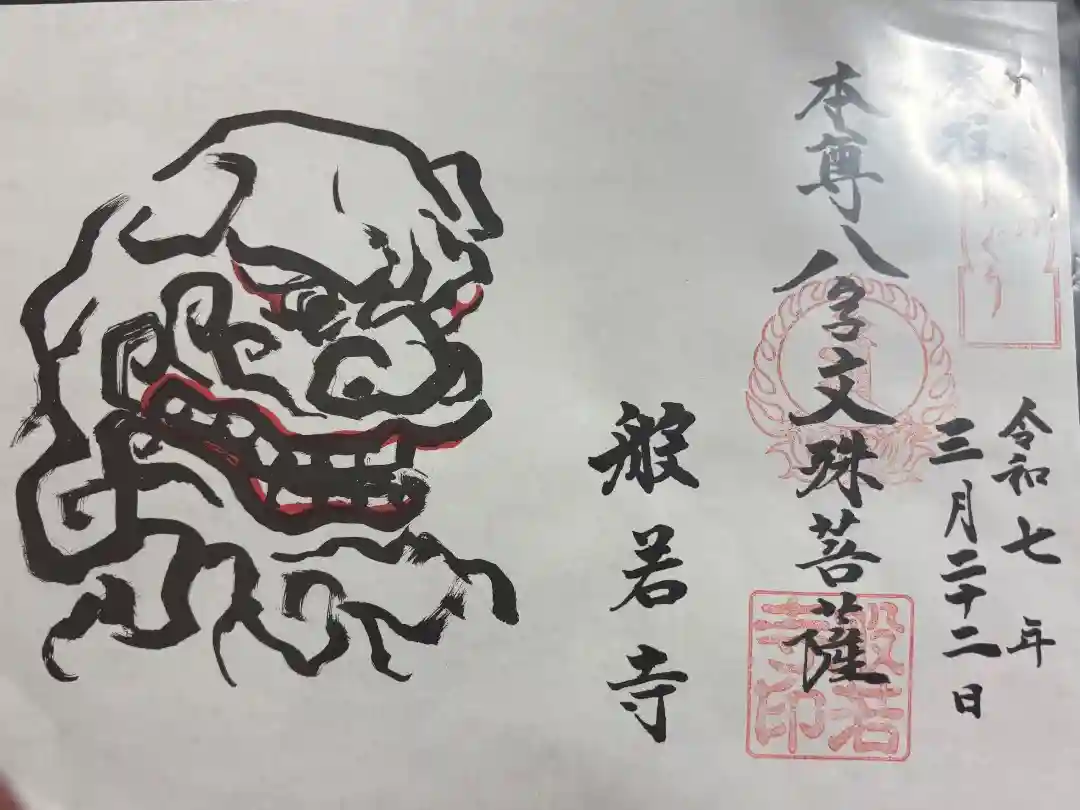 令和七年
三月二十二日
本尊八字文殊菩薩
般若寺印
般若寺